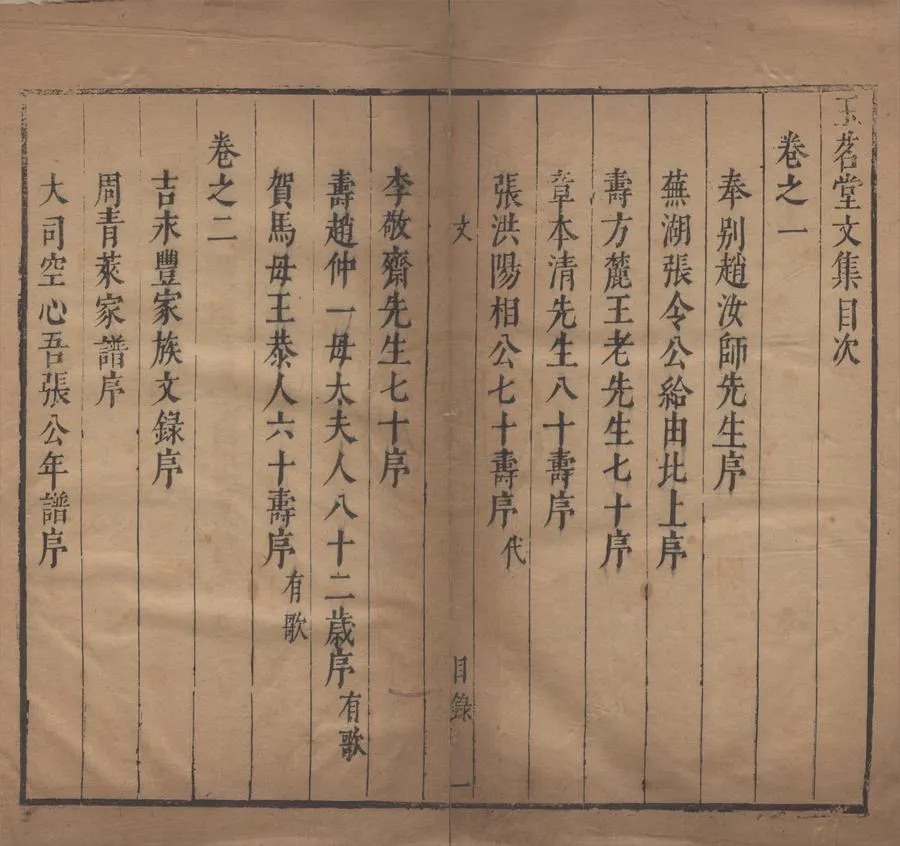 玉茗堂文集目次
卷之一
奉别趙汝師先生序
蕪湖張令公給由北上序
壽方麓王老先生七十序
章本清先生八十壽序
張洪陽相公七十壽序 代
文 目錄 一
李敬齋先生七十序
壽趙仲一母太夫人八十二歲序 有歌
賀馬母王恭人六十壽序 有歌
卷之二
吉永豐家族文録序
周青萊家譜序
大司空心吾張公年譜序